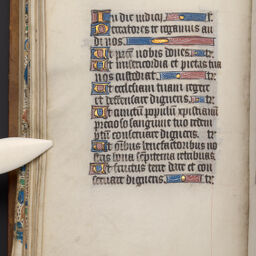 In die iudicij. l.
Peccatores te rogamus au
di nos.
Ut pacē nobis dones. te
Ut misericordia et pietas tua
nos custodiat. te
Ut ecclesiam tuam regere
et deffensare digneris. te
Ut cunctum populum xpistianum
precioso sanguine tuo redem
ptum conseruare digneris. te
Ut oībus benefactoribus no
stris bona sempiterna retribuas.
Ut fructus terre dare et con
seruare digneris. te